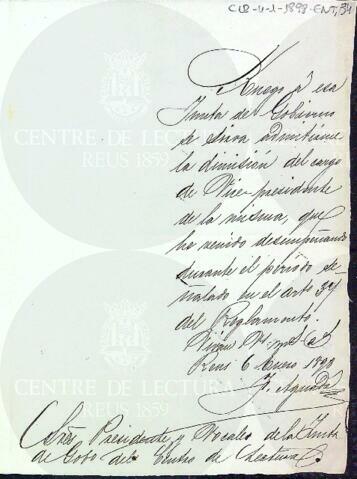 C18-4-1-1898-ENT,34
Ruego á esa
Junta de Gobierno
se sirva admitirme
la dimision del cargo
de Vice-presidente
de la misma, que
he venido desempeñando
durante el periodo se-
ñalado en el arto 37
del Reglamento.
Reus 6 Enero 1898
Sres Presidente y Vocales de la Junta
de Gobo del Centro de Lectura.
CENTRE DE LECTURA
REUS 1859
CENTRE DE LECTURA
REUS 1859